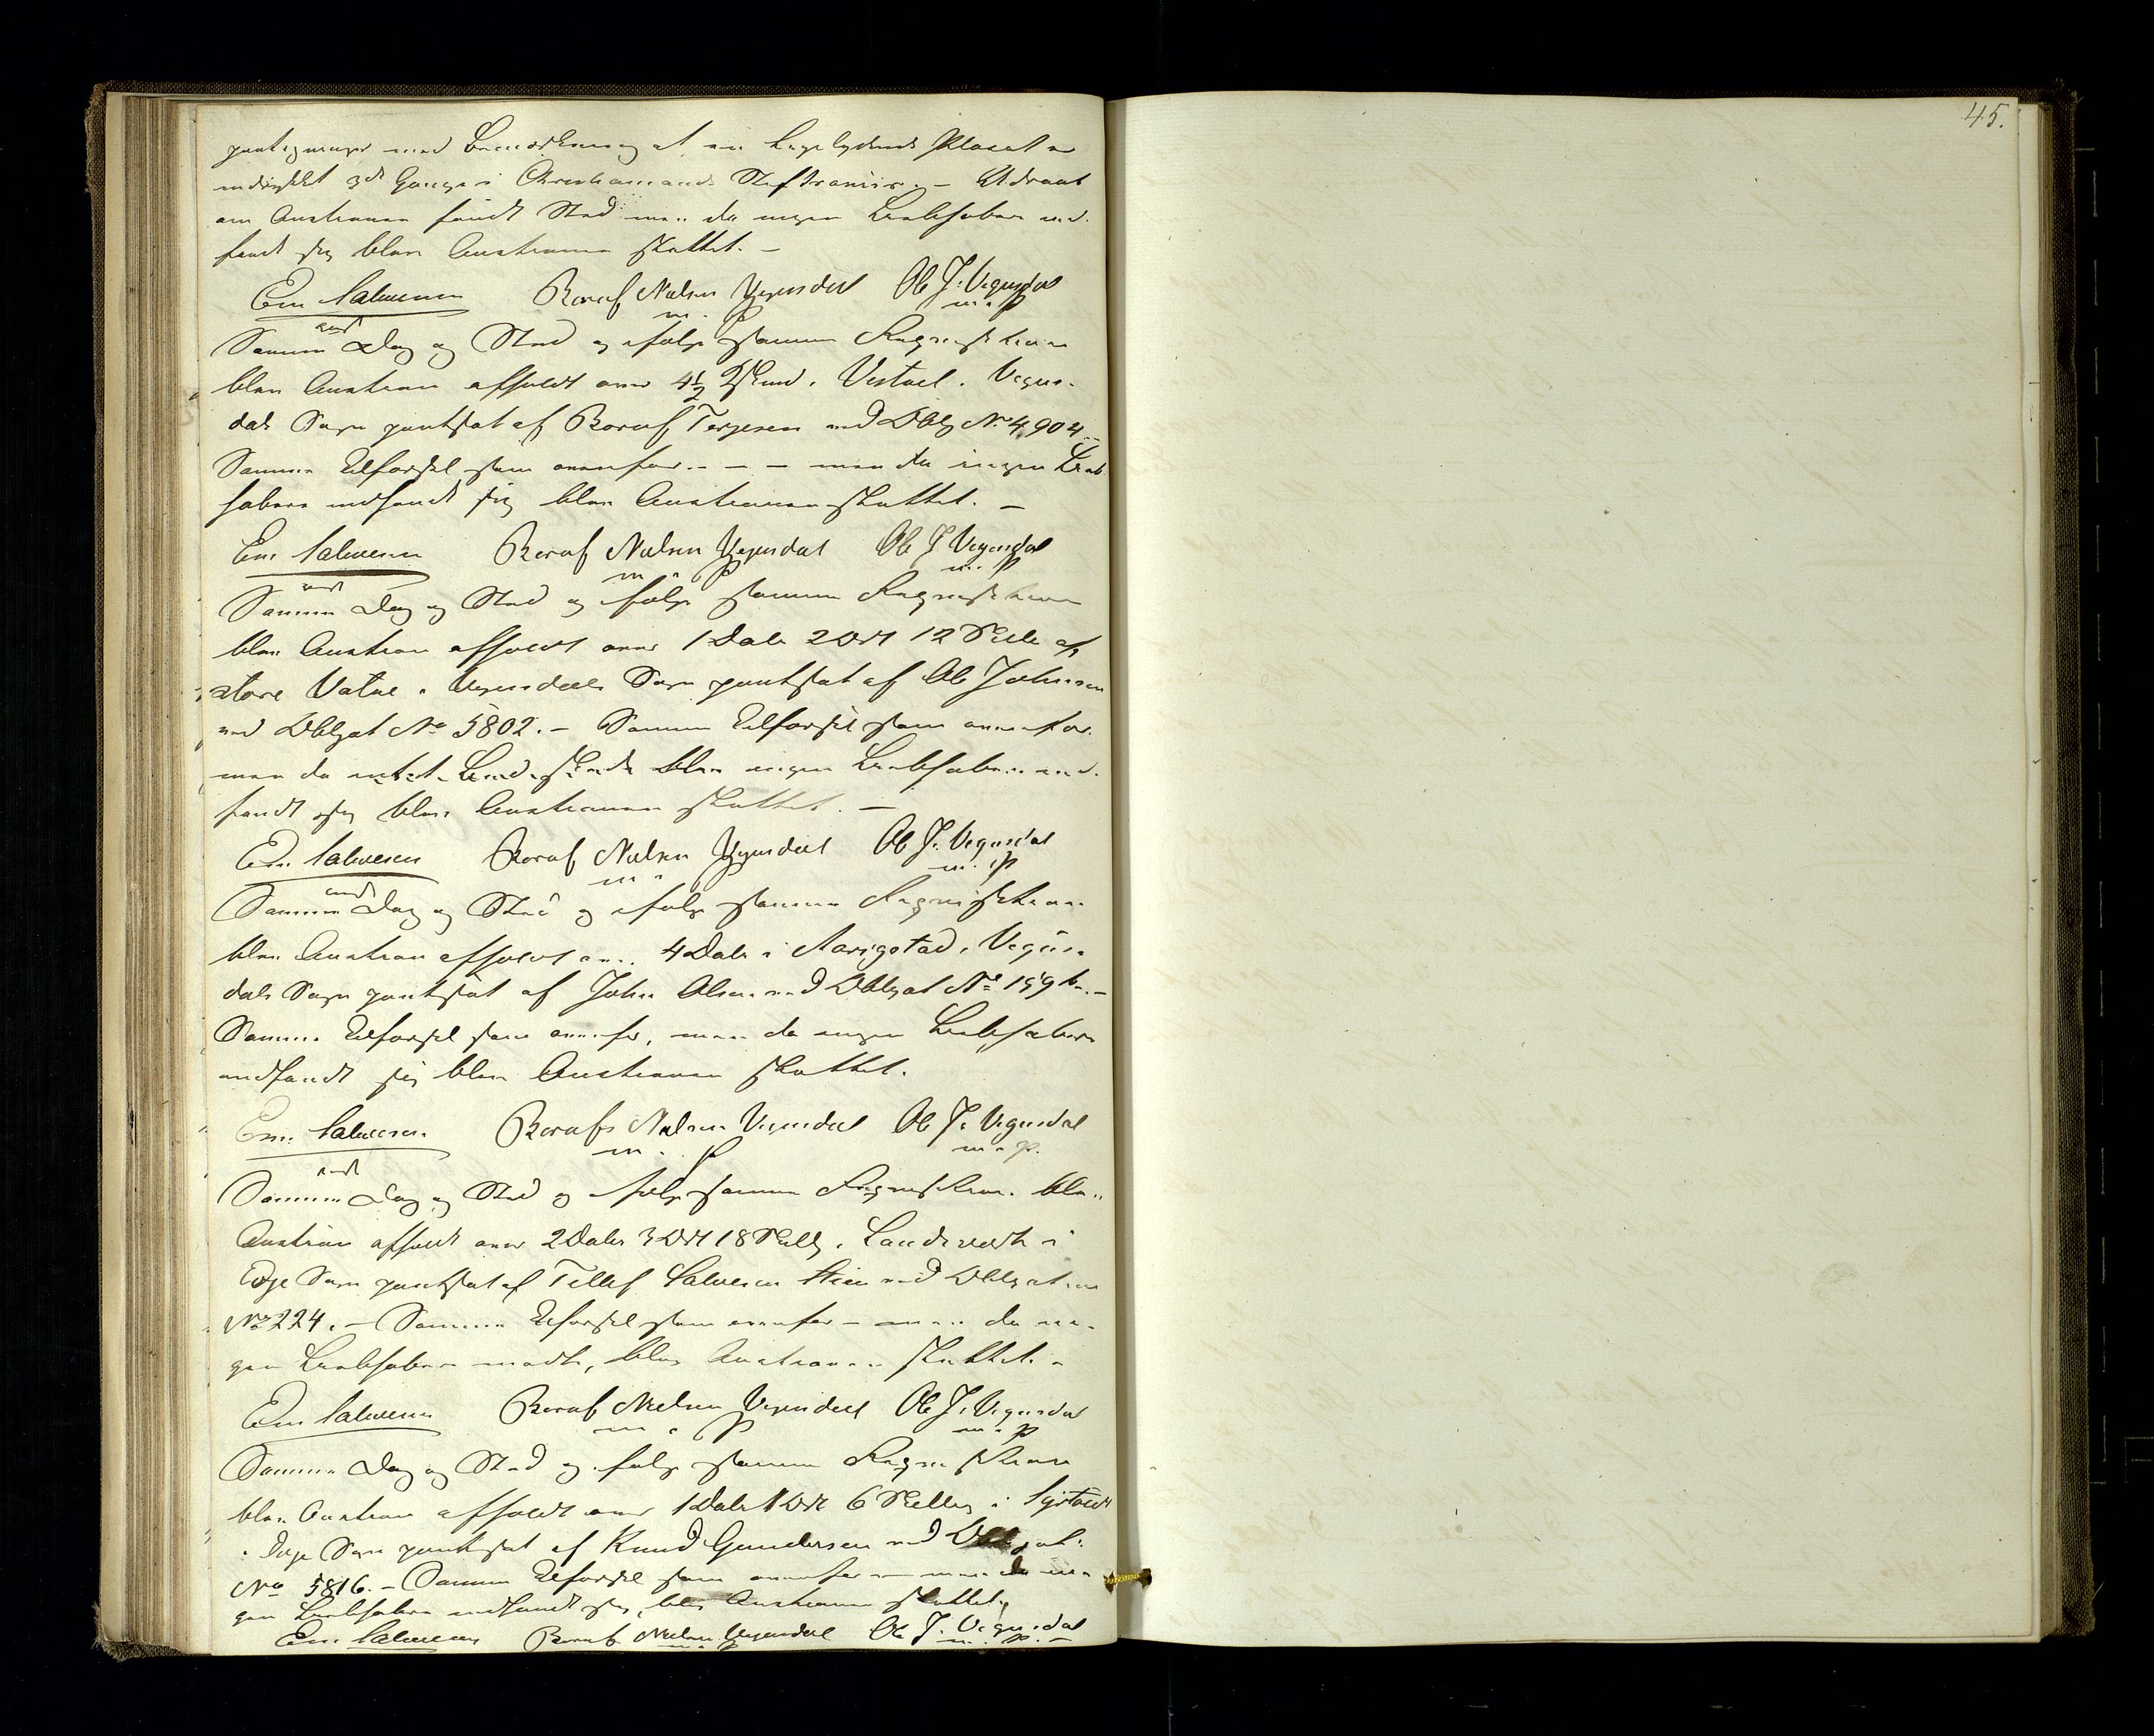 paategninger med Bemærkning at en ligelydende Placat er
indrykket 3de Gange i Christiansands Stiftsavis. – Udraab
om Auctionen fandt Sted men da ingen Liebhabere ind-
fandt sig blev Auctionen sluttet. –
Em Salvesen Beruf Nielsen Vegusdal Ole J. Vegusdal
m. P m. P
Samme Dag og Sted og ifølge samme Reqvisition
blev Auction afholdt over 4½ Skind i Vestøel i Vegus-
dals Sogn pantsat af Beruf Terjesen ved Oblg No 4904 –
Samme Tilførsel som ovenfor. – – – men da ingen Lieb
habere indfandt sig blev Auctionen sluttet. –
Em Salvesen Beruf Nielsen Vegusdal Ole J Vegusdal
m. P m. P
Samme Dag og Sted og ifølge samme Reqvisition
blev Auction afholdt over 1 Daler 2 Ort 12 Skill af
store Vatne i Vegusdals Sogn pantsat af Ole Johnsen
ved Obligat No 5802. – Samme Tilførsel som ovenfor
men da intet Bud skede blev ingen Liebhabere ind-
fandt sig blev Auctionen sluttet. –
Em Salvesen Beruf Nielsen Vegusdal Ole J. Vegusdal
m. m. P
Samme Dag og Sted og ifølge samme Reqvisition
blev Auction afholdt over 4 Daler i Aarigstad i Vegus-
dals Sogn pantsat af John Olsen ved Obligat No 159 –
Samme Tilførsel som ovenfor, men da ingen Liebhabere
indfandt sig blev Auctionen sluttet.
Em. Salvesen Beruf Nielsen Vegusdal Ole J. Vegusdal
m. P m. P.
Samme Dag og Sted og ifølge samme Reqvisition blev
Auction afholdt over 2 Daler 3 Ort 18 Skillg i
i
Sogn pantsat af Tellef Salvesen ved Obligation
No 224. – Samme Tilførsel som ovenfor – men da in-
gen Liebhabere mødte, blev Auctionen sluttet. –
Em Salvesen Beruf Nielsen Vegusdal Ole J. Vegusdal
m. P m. P
Samme Dag og Sted og ifølge samme Reqvisition
blev Auction afholdt over 1 Daler 1 Ort 6 Skilling i
i Sogn pantsat af Knud Gundersen ved Obligat:
No 5816. – Samme Tilførsel som ovenfor – men da in-
gen Liebhabere indfandt sig, blev Auctionen sluttet,
Em Salvesen Beruf Nielsen Vegusdal Ole J. Vegusdal
m. P m. P. –
45.